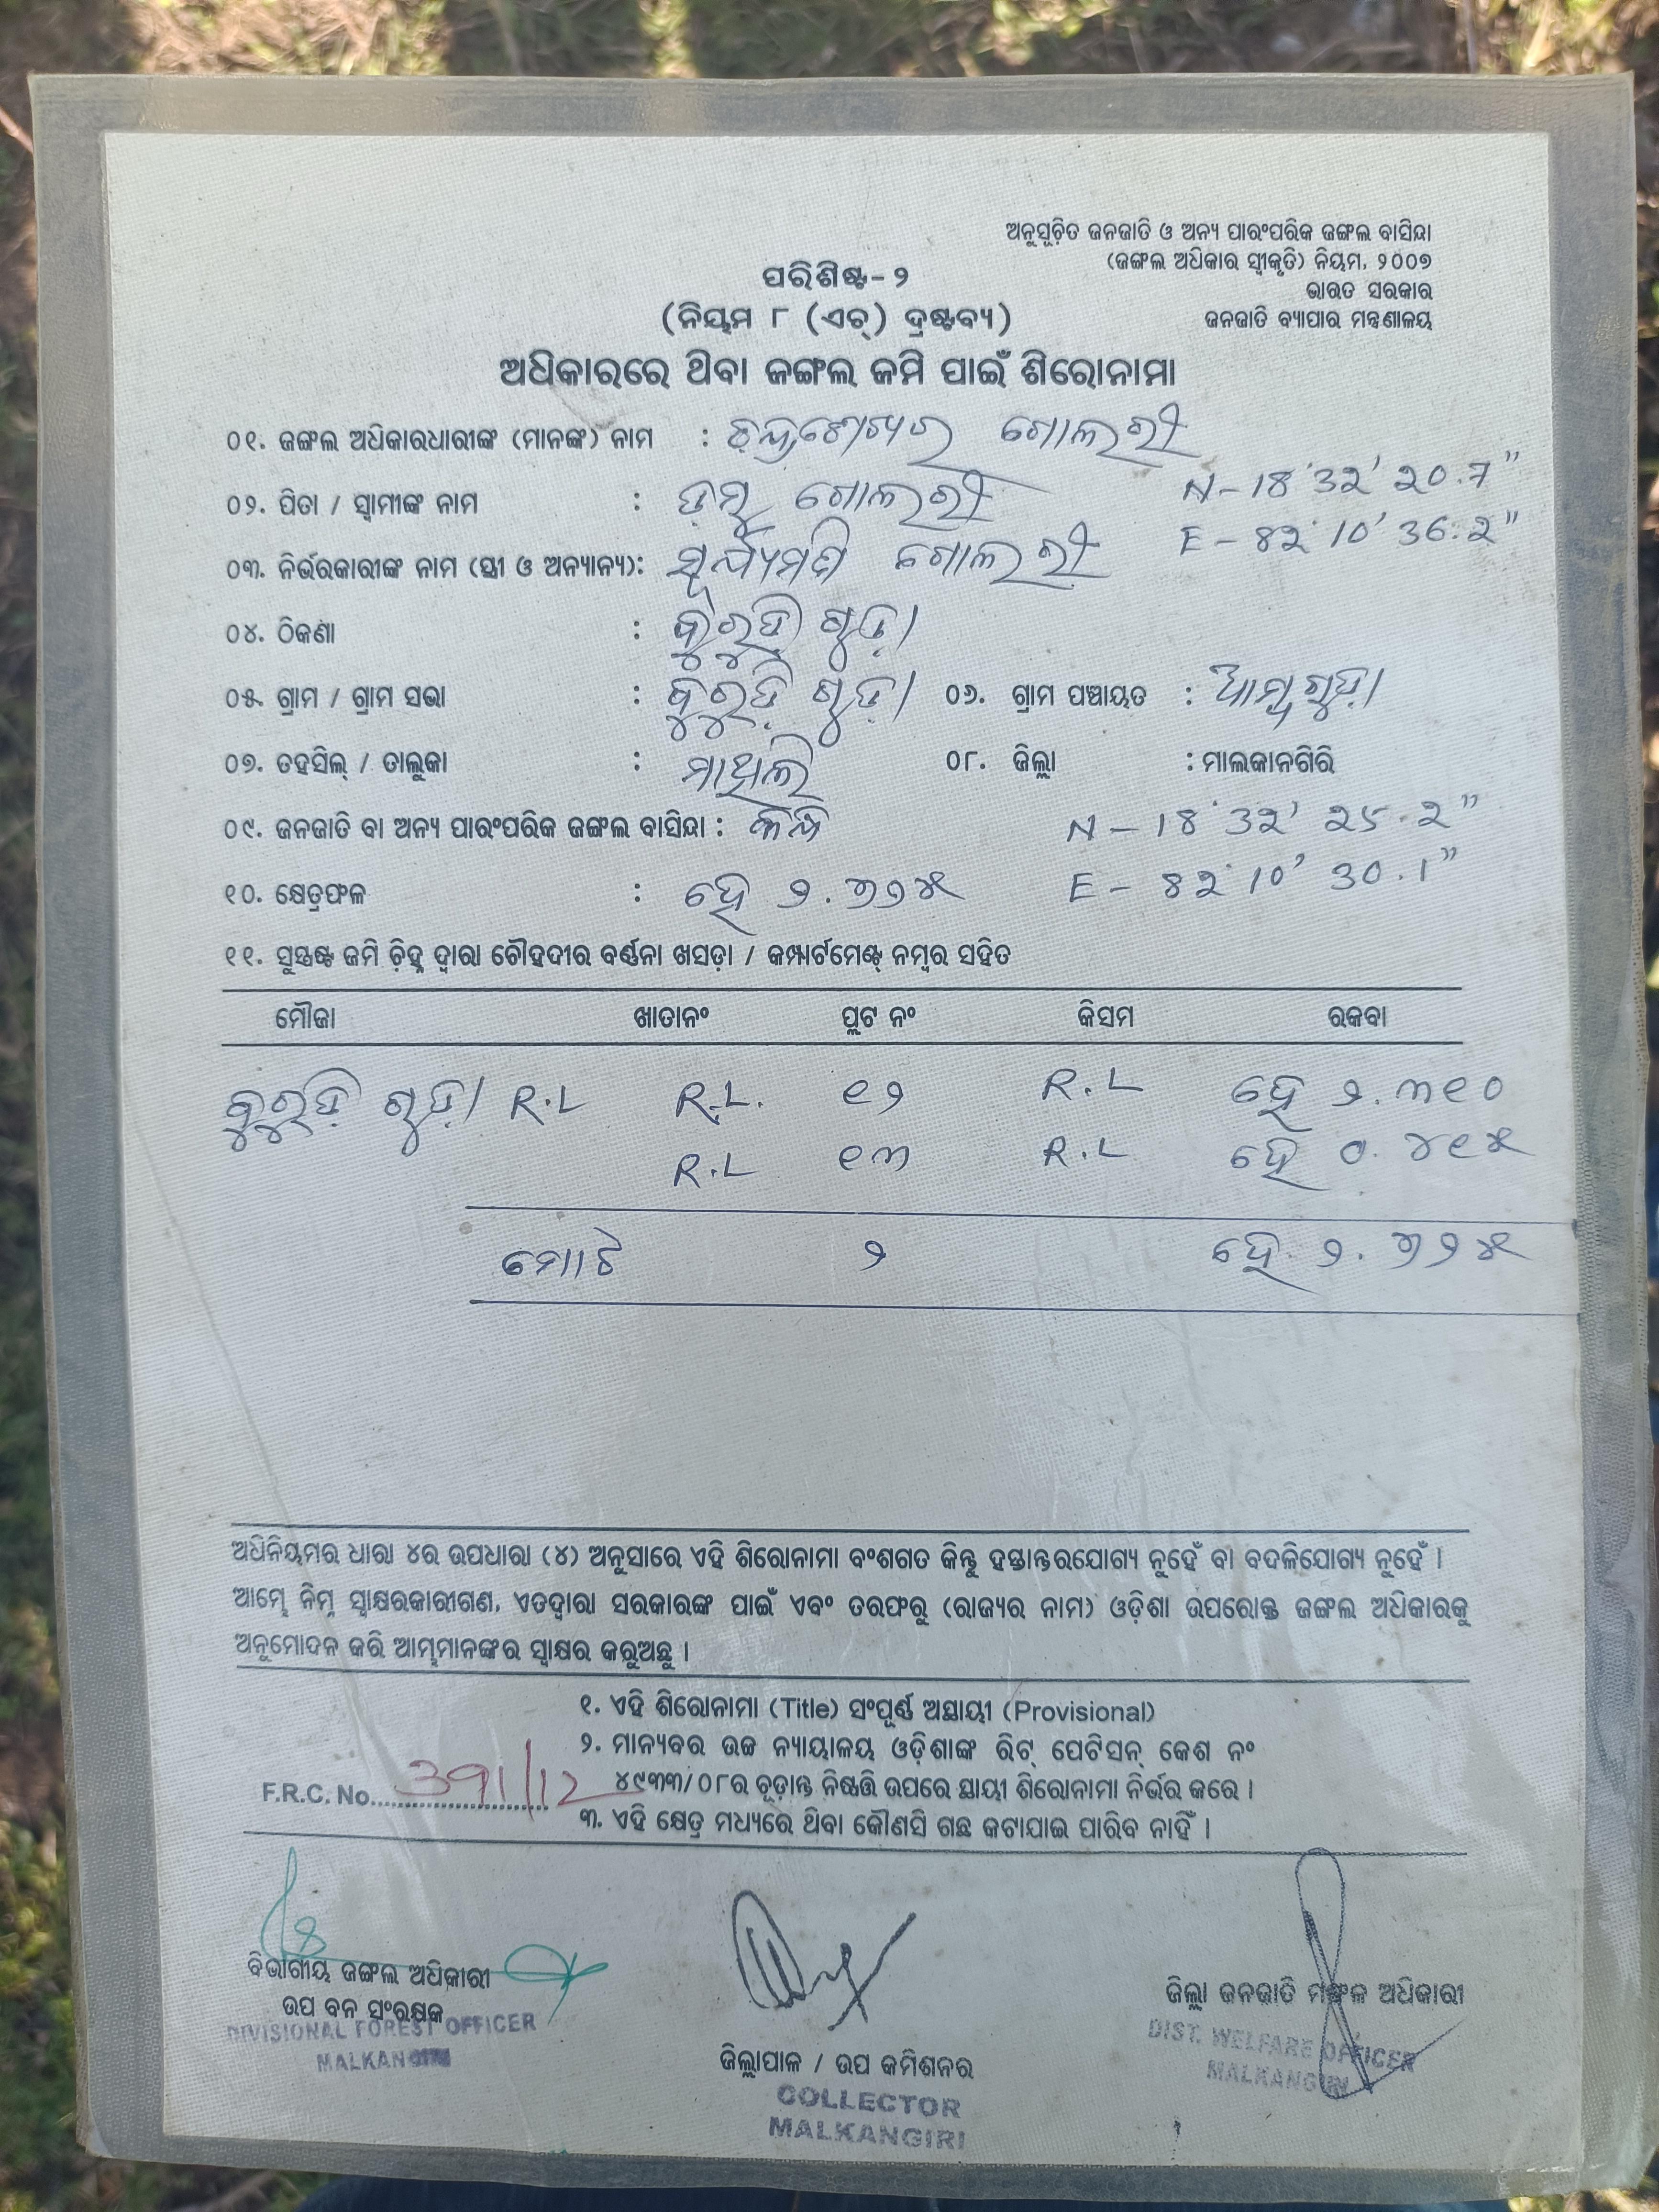 ଅନୁସୂଚିତ ଜନଜାତି ଓ ଅନ୍ୟ ପାରଂପରିକ ଜଙ୍ଗଲ ବାସିନ୍ଦା
(ଜଙ୍ଗଲ ଅଧିକାର ସ୍ୱୀକୃତି) ନିୟମ, ୨୦୦୭
ଭାରତ ସରକାର
ଜନଜାତି ବ୍ୟାପାର ମନ୍ତ୍ରଣାଳୟ
ପରିଶିଷ୍ଟ-୨
(ନିୟମ ୮ (ଏଚ୍) ଦ୍ରଷ୍ଟବ୍ୟ)
ଅଧିକାରରେ ଥିବା ଜଙ୍ଗଲ ଜମି ପାଇଁ ଶିରୋନାମା
୦୧. ଜଙ୍ଗଲ ଅଧିକାରଧାରୀଙ୍କ (ମାନଙ୍କ) ନାମ : ଚନ୍ଦ୍ରଶେଖର ଗୋଲରୀ
୦୨. ପିତା / ସ୍ୱାମୀଙ୍କ ନାମ : ଡମ୍ବୁ ଗୋଲରୀ N-18°32'20.7"
୦୩. ନିର୍ଭରକାରୀଙ୍କ ନାମ (ସ୍ତ୍ରୀ ଓ ଅନ୍ୟାନ୍ୟ): ସୂର୍ଯ୍ୟମଣି ଗୋଲରୀ E-82°10'36.2"
୦୪. ଠିକଣା : କୁରୁଡ଼ି ଗୁଡ଼ା
୦୫. ଗ୍ରାମ / ଗ୍ରାମ ସଭା : କୁରୁଡ଼ି ଗୁଡ଼ା ୦୬. ଗ୍ରାମ ପଞ୍ଚାୟତ : ଆମ୍ବଗୁଡ଼ା
୦୭. ତହସିଲ୍ / ତାଲୁକା : ମାଥିଲି ୦୮. ଜିଲ୍ଲା : ମାଲକାନଗିରି
୦୯. ଜନଜାତି ବା ଅନ୍ୟ ପାରଂପରିକ ଜଙ୍ଗଲ ବାସିନ୍ଦା : କନ୍ଧ N-18°32'25.2"
୧୦. କ୍ଷେତ୍ରଫଳ : ହେ ୨.୭୨୫ E-82°10'30.1"
୧୧. ସୁସ୍ପଷ୍ଟ ଜମି ଚିହ୍ନ ଦ୍ୱାରା ଚୌହଦୀର ବର୍ଣ୍ଣନା ଖସଡ଼ା / କମ୍ପାର୍ଟମେଣ୍ଟ୍ ନମ୍ବର ସହିତ
ମୌଜା ଖାତାନଂ ପ୍ଲଟ ନଂ କିସମ ରକବା
କୁରୁଡ଼ି ଗୁଡ଼ା R.L R.L. ୧୨ R.L ହେ ୨.୩୧୦
R.L ୧୩ R.L ହେ ୦.୪୧୫
ମୋଟ ୨ ହେ. ୨.୭୨୫
ଅଧିନିୟମର ଧାରା ୪ର ଉପଧାରା (୪) ଅନୁସାରେ ଏହି ଶିରୋନାମା ବଂଶଗତ କିନ୍ତୁ ହସ୍ତାନ୍ତରଯୋଗ୍ୟ ନୁହେଁ ବା ବଦଳିଯୋଗ୍ୟ ନୁହେଁ ।
ଆମ୍ଭେ ନିମ୍ନ ସ୍ୱାକ୍ଷରକାରୀଗଣ, ଏତଦ୍ଵାରା ସରକାରଙ୍କ ପାଇଁ ଏବଂ ତରଫରୁ (ରାଜ୍ୟର ନାମ) ଓଡ଼ିଶା ଉପରୋକ୍ତ ଜଙ୍ଗଲ ଅଧିକାରକୁ
ଅନୁମୋଦନ କରି ଆମ୍ଭମାନଙ୍କର ସ୍ୱାକ୍ଷର କରୁଅଛୁ ।
୧. ଏହି ଶିରୋନାମା (Title) ସଂପୂର୍ଣ୍ଣ ଅସ୍ଥାୟୀ (Provisional)
୨. ମାନ୍ୟବର ଉଚ୍ଚ ନ୍ୟାୟାଳୟ ଓଡ଼ିଶାଙ୍କ ରିଟ୍ ପେଟିସନ୍ କେଶ ନଂ
୪୯୩୩/୦୮ର ଚୂଡ଼ାନ୍ତ ନିଷ୍ପତ୍ତି ଉପରେ ସ୍ଥାୟୀ ଶିରୋନାମା ନିର୍ଭର କରେ ।
F.R.C. No. 391/12
୩. ଏହି କ୍ଷେତ୍ର ମଧ୍ୟରେ ଥିବା କୌଣସି ଗଛ କଟାଯାଇ ପାରିବ ନାହିଁ ।
ବିଭାଗୀୟ ଜଙ୍ଗଲ ଅଧିକାରୀ
ଉପ ବନ ସଂରକ୍ଷକ
DIVISIONAL FOREST OFFICER
MALKANGIRI
ଜିଲ୍ଲାପାଳ / ଉପ କମିଶନର
COLLECTOR
MALKANGIRI
ଜିଲ୍ଲା ଜନଜାତି ମଙ୍ଗଳ ଅଧିକାରୀ
DIST. WELFARE OFFICER
MALKANGIRI